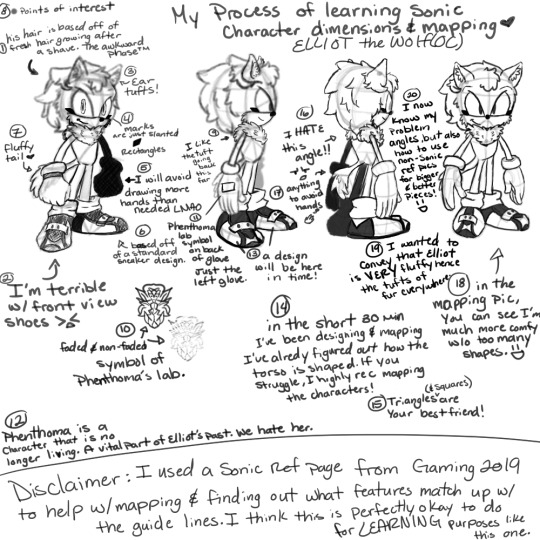 My Process of learning Sonic
Character dimensions & mapping
ELLIOT the Wolf(OC)
⑧ * Points of interest
① his hair is based off of
fresh hair growing after
a shave. The awkward
phase™
③
~ Ear
tufts!
④
marks
are just slanted
Rectangles
⑦
Fluffy
tail
⑤
I will avoid
drawing more
hands than
needed LMAO
⑥
R based off
of a standard
sneaker design.
②
I'm terrible
w/ front view
shoes >:<
⑨
I like
the tuft
going
back
this
far
⑪
Phenthoma
lab
symbol
on back
of glove
Just the
left glove.
⑩
faded & non-faded
symbol of
Phenthoma's lab.
⑬ a design
will be here
in time!
⑯
I HATE
this
angle!!
⑰ anything
to avoid
hands
⑳
I now
know my
Problem
angles, but also
how to use
non-sonic
ref pics
for bigger
& better
pieces!
⑲ I wanted to
convey that Elliot
is VERY fluffy hence
the tufts of
fur everywhere
⑭
in the short 30 min
I've been designing & mapping
I've already figured out how the
torso is shaped. If you
struggle, I highly rec mapping
the characters!
⑱ in the
mapping Pic,
You can see I'm
much more comfy
w/o too many
shapes.
(& squares)
⑮ Triangles are
Your best friend!
⑫
Phenthoma is a
Character that is no
longer living. A vital part of Elliot's past. We hate her.
Disclaimer: I used a Sonic Ref page from Gaming 2019
to help w/mapping & finding out what features match up w/
the guide lines. I think this is perfectly okay to do
for LEARNING purposes like
this one.